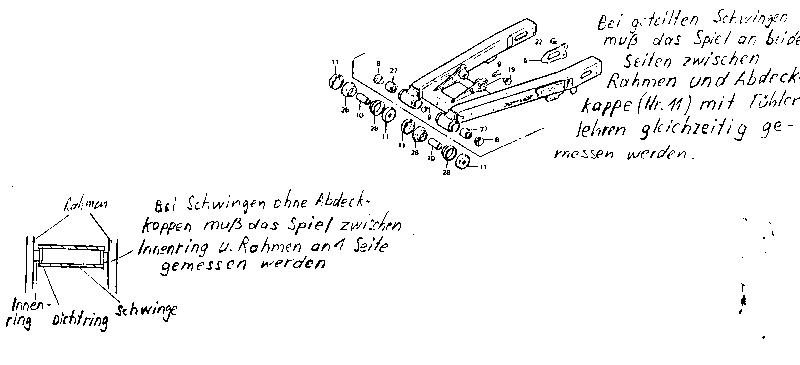 Bei geteilten Schwingen
muß das Spiel an beide
Seiten zwischen
Rahmen und Abdeck-
kappe (Nr. 11) mit Fühler
lehren gleichzeitig ge-
messen werden.
11
8
27
26
10
28
11
9
22
6
9
19
11
28
10
28
11
27
8
Rahmen
Bei Schwingen ohne Abdeck-
kappen muß das Spiel zwischen
Innenring u. Rahmen an 1 Seite
gemessen werden
Innen-
ring
Dichtring
Schwinge